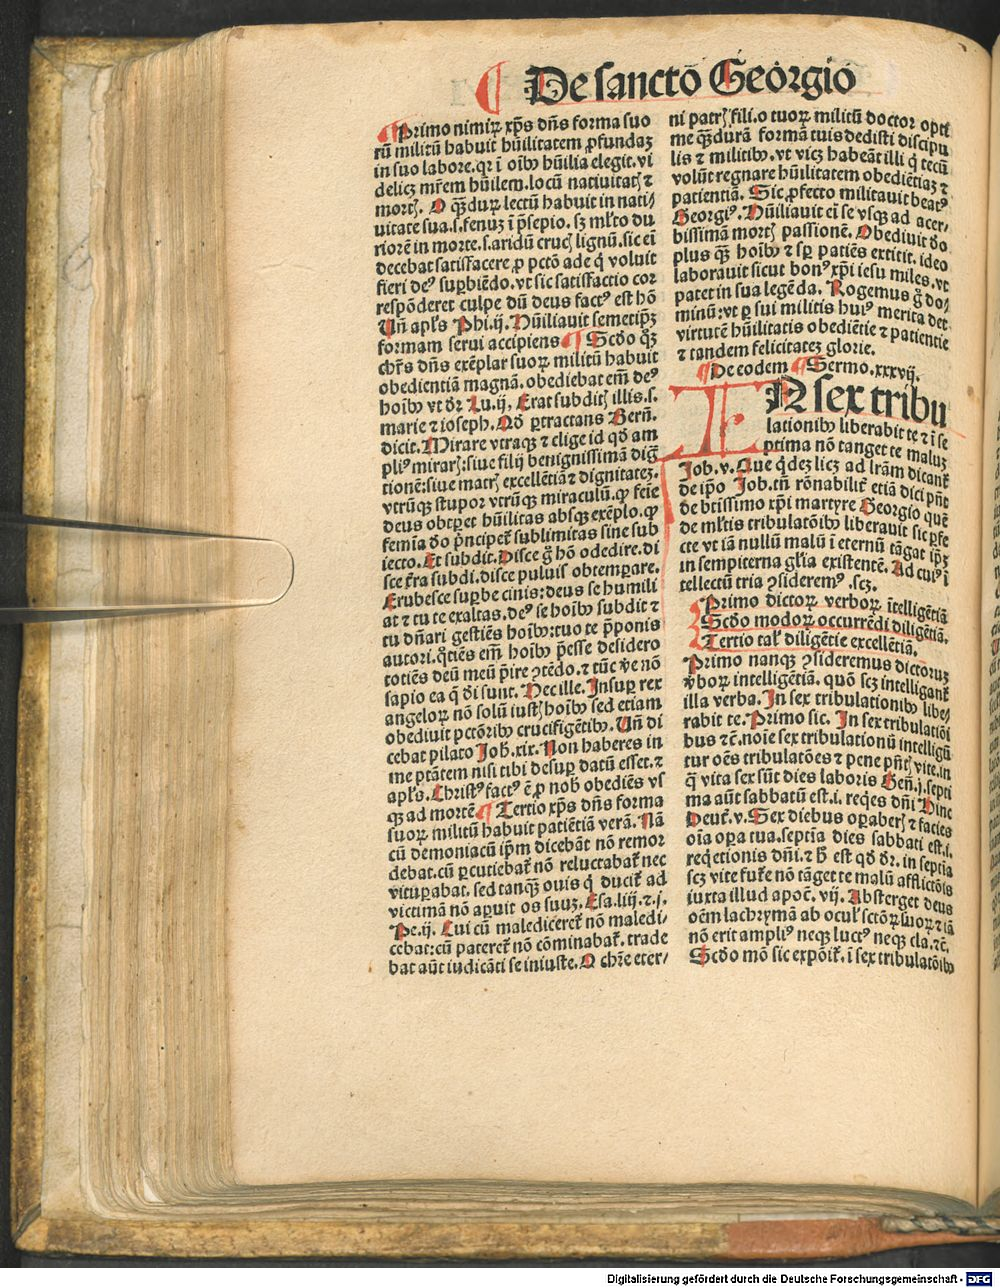 De sancto Georgio
¶ Primo nimiꝝ xp̄s dn̄s forma suo
rū militū habuit hūilitatem ꝓfundaꝫ
in suo labore. qꝛ ī oībꝰ hūilia elegit. vi
delicꝫ mr̄em hūilem. locū nativitatꝭ ⁊
mortꝭ. O qꝫ̄ duꝝ lectū habuit in nati⸗
uitate sua. s. fenuꝫ ī p̄sepio. sꝫ ml̓to du
riorē in morte. s. aridū crucꝭ lignū. sic eī
decebat satisfacere ꝓ pctō ade qͥ voluit
fieri deꝰ suꝑbiēdo. vt sic satisfactio cor
respōderet culpe dū deus factꝰ est hō
Un̄ apl̓s Phi. ij. Hūiliauit semetip̄ꝫ
formam serui accipiens ¶ Scdo qꝫ̄
chr̄s dn̄s exēplar suoꝝ militū habuit
obedientiā magnā. obediebat em̄ deꝰ
hoībꝰ vt dr̄ Lu. ij. Erat subditꝭ illis. s.
marie ⁊ ioseph. Qd̓ ꝑtractans Bern̄.
dicit. Mirare vtraqꝫ ⁊ elige id qd̓ am
pliꝰ mirarꝭ: siue filij benignissimā digᷓ
tionē: siue matrꝭ excellētiā ⁊ dignitateꝫ.
vtrūqꝫ stupor vtrūqꝫ miraculū. ꝙ feīe
deus obtꝑet hūilitas absqꝫ exēplo. ꝙ
femīa d̓o pͥncipet̄ sublimitas sine sub
iecto. Et subdit. Disce gͦ hō odedire. di
sce t̄ra subdi. disce puluis obtemꝑare.
Erubesce suꝑbe cinis: deus se humili
at ⁊ tu te exaltas. deꝰ se hoībꝰ subdit ⁊
tu dn̄ari gestiēs hoībꝰ: tuo te p̄ponis
autori. qͦtiēs em̄ hoībꝰ p̄esse desidero
totiēs deū meū p̄ire ꝯtēdo. ⁊ tūc v̓e nō
sapio ea q̄ d̓i sunt. Hec ille. Insuꝑ rex
angeloꝝ nō solū iustꝭ hoībꝰ sed etiam
obediuit pctōribꝰ crucifigētibꝰ. Un̄ di
cebat pilato Joh̄. xix. Non haberes in
me ptātem nisi tibi desuꝑ datū esset. ⁊
apl̓s. Christꝰ factꝰ ē ꝓ nob̓ obediēs vs
qꝫ ad mortē ¶ Tertio xp̄s dn̄s forma
suoꝝ militū habuit patiētiā verā. Nā
cū demoniacū ip̄m dicebāt nō remor
debat. cū ꝑcutiebat̄ nō reluctabat̄ nec
vituꝑabat. sed tanqꝫ̄ ouis qͥ ducit̄ ad
victimā nō aꝑuit os suuꝫ. Esa. liij. ⁊. j.
Pe. ij. Cui cū malediceret̄ nō maledi⸗
cebat: cū pateret̄ nō cōminabat̄. trade
bat aūt iudicāti se iniuste. O chr̄e eter⸗
ni patrꝭ fili. o tuoꝝ militū doctor opti
me qꝫ̄ durā formā tuis dedisti discipu
lis ⁊ militibꝰ. vt vicꝫ habeāt illi qͥ tecū
volūt regnare hūilitatem obediētiaꝫ ⁊
patientiā. Sic ꝓfecto militauit beatꝰ
Georgiꝰ. Hūiliauit em̄ se vsqꝫ ad acer⸗
bissimā mortꝭ passionē. Obediuit d̓o
plus qꝫ̄ hoībꝰ ⁊ sꝑ patiēs extitit. ideo
laborauit sicut bonꝰ xp̄i iesu miles. vt
patet in sua legēda. Rogemus gͦ do⸗
minū: vt ꝑ sui militis huiꝰ merita det
virtutē hūilitatis obediētie ⁊ patientie
⁊ tandem felicitateꝫ glorie.
¶ De eodem ¶ Sermo. xxxvij.
IN sex tribu
lationibꝰ liberabit te ⁊ ī se
ptima nō tanget te maluꝫ
Job. v. Que qͥdeꝫ licꝫ ad lr̄am dicant̄
de ip̄o Job. tn̄ rōnabilit̄ etiā dici pn̄t
de btīssimo xp̄i martyre Georgio quē
de ml̓tis tribulatōibꝰ liberauit sic ꝑfe
cte vt iā nullū malū ī eternū tāgat ip̄ꝫ
in sempiterna gl̓ia existentē. Ad cuiꝰ ī
tellectū tria ꝯsideremꝰ. scꝫ.
Primo dictoꝝ verboꝝ ītelligētiā
Scdo modoꝝ occurrēdi diligētiā.
Tertio tal̓ diligētie excellētiā.
Primo nanqꝫ ꝯsideremus dictoruꝫ
v̓boꝝ intelligētiā. quō scꝫ intelligant̄
illa verba. In sex tribulationibꝰ libe⸗
rabit te. Primo sic. In sex tribulatiōi
bus ⁊c̄. noīe sex tribulationū intelligū
tur oēs tribulatōes ⁊ pene pn̄tꝭ vite. in
qᷓ vita sex sūt dies laboris Gen̄. j. septi
ma aūt sabbatū est. i. reqͥes dn̄i Hinc
Deut̄. v. Sex diebus oꝑaberꝭ ⁊ facies
oīa oꝑa tua. septīa dies sabbati est. i.
reqͥetionis dn̄i. ⁊ h̄ est qd̓ dr̄. in septīa
scꝫ vite fut̄e nō tāget te malū afflictōis
iuxta illud apoc̄. vij. Absterget deus
oēm lachrymā ab ocul̓ sctōꝝ suoꝝ ⁊ iā
nō erit ampliꝰ neqꝫ luctꝰ neqꝫ cla. ⁊c̄.
Scdo mō sic expōit̄. ī sex tribulatōibꝰ
Digitalisierung gefördert durch die Deutsche Forschungsgemeinschaft - DFG